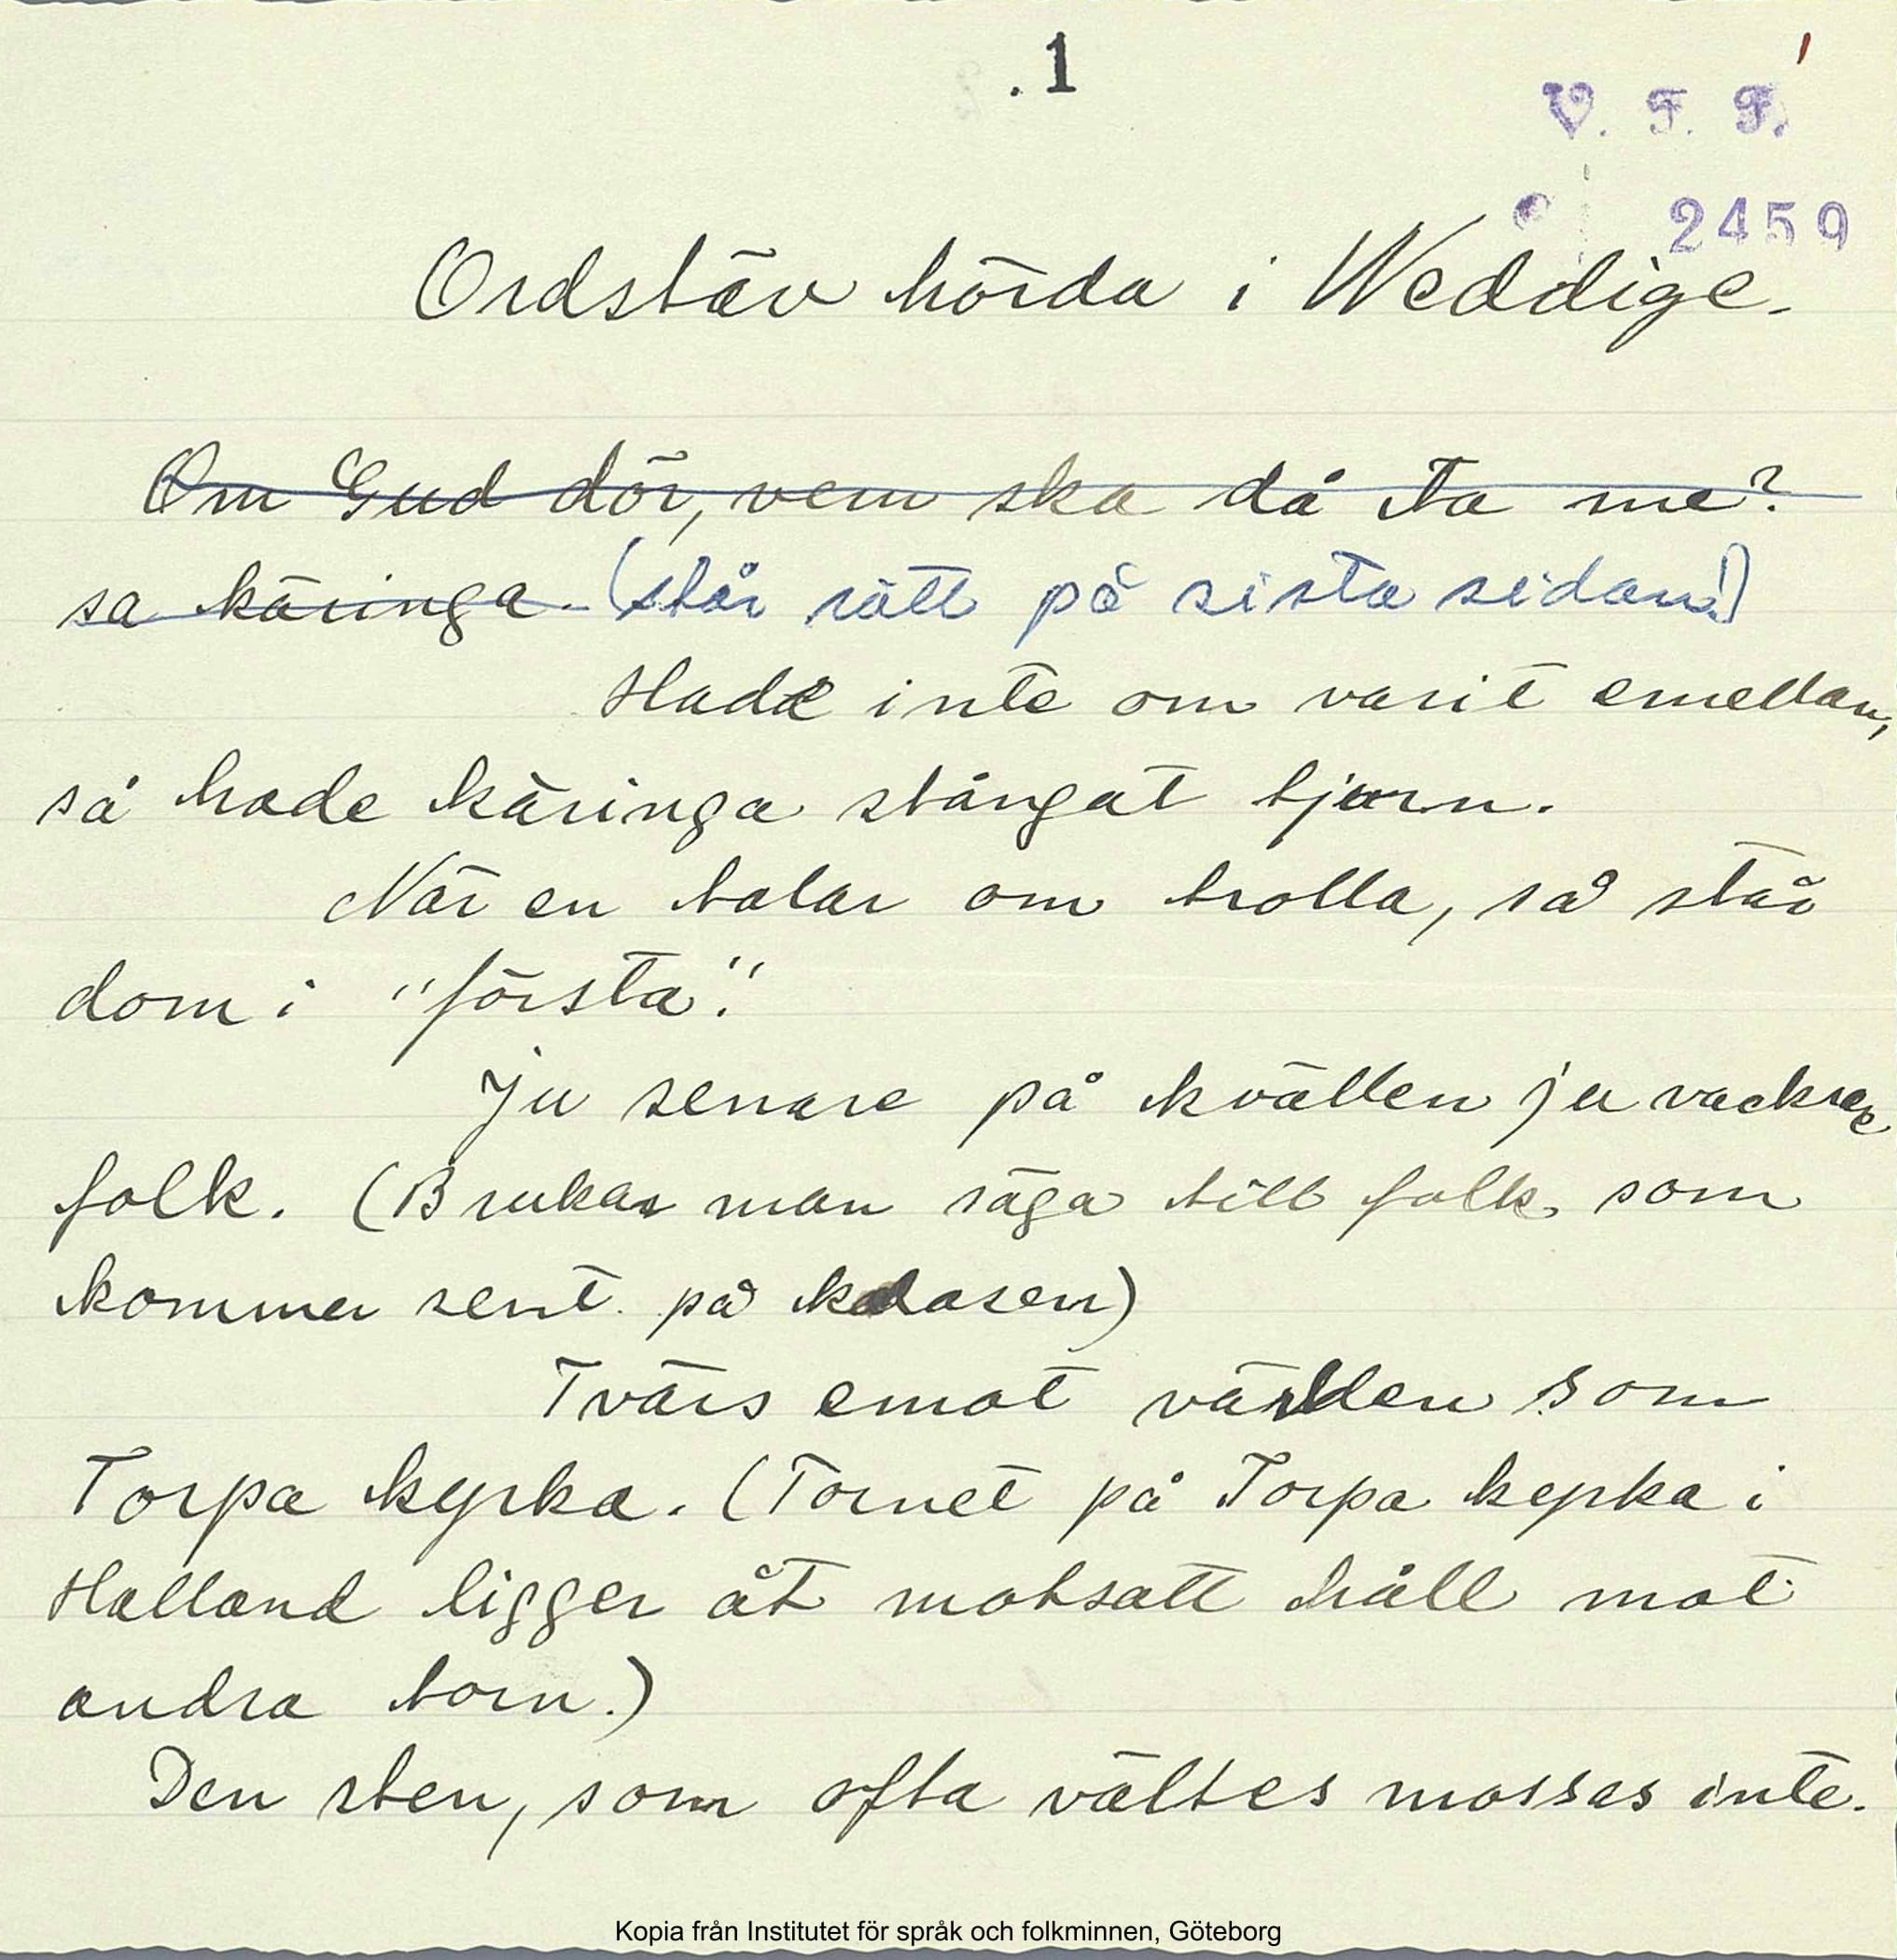 .1
V. F. F.
2459
Ordstäv hörda i Weddige.
Om Gud dör, vem ska då ta me?
sa käringa. (står rätt på sista sidan!)
Hade inte om varit emellan,
så hade käringa stångat tjurn.
När en talar om trolla, så står
dom i "första".
Ju senare på kvällen ju vackrare
folk. (Brukar man säga till folk som
kommer sent på kalasen)
Tvärs emot världen som
Torpa kyrka. (Tornet på Torpa kyrka i
Halland ligger åt motsatt håll mot
andra torn.)
Den sten, som ofta vältes mossas inte.
Kopia från Institutet för språk och folkminnen, Göteborg